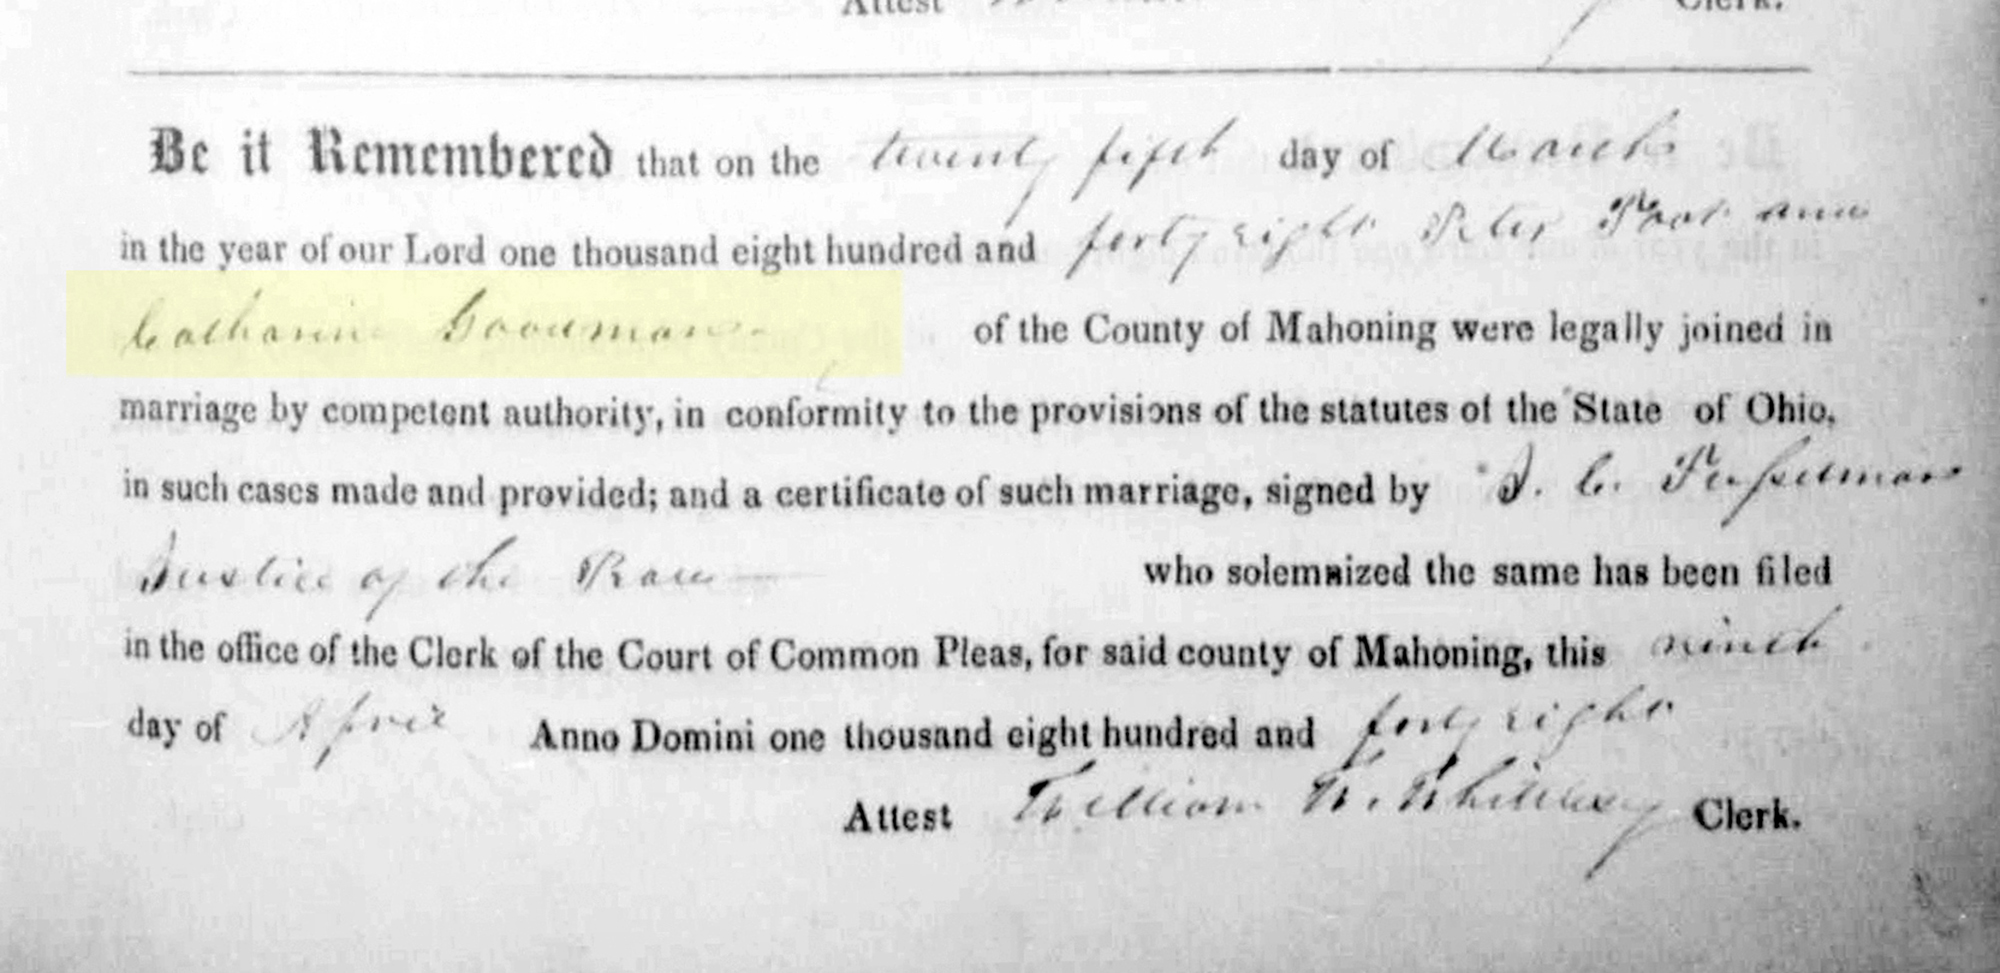 Attest Clerk.
Be it Remembered that on the twenty fifth day of March
in the year of our Lord one thousand eight hundred and forty eight Peter and
Catharine Goodman - of the County of Mahoning were legally joined in
marriage by competent authority, in conformity to the provisions of the statutes of the State of Ohio,
in such cases made and provided; and a certificate of such marriage, signed by J. C.
Justice of the Peace — who solemnized the same has been filed
in the office of the Clerk of the Court of Common Pleas, for said county of Mahoning, this ninth
day of April Anno Domini one thousand eight hundred and forty eight
Attest William W. Whittlesey Clerk.